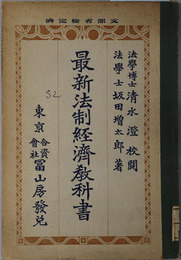 文部省檢定濟
法學博士 清水澄 校閲
法學士 坂田増太郎 著
最新法制經濟教科書
52
東京 合資會社 冨山房發兌